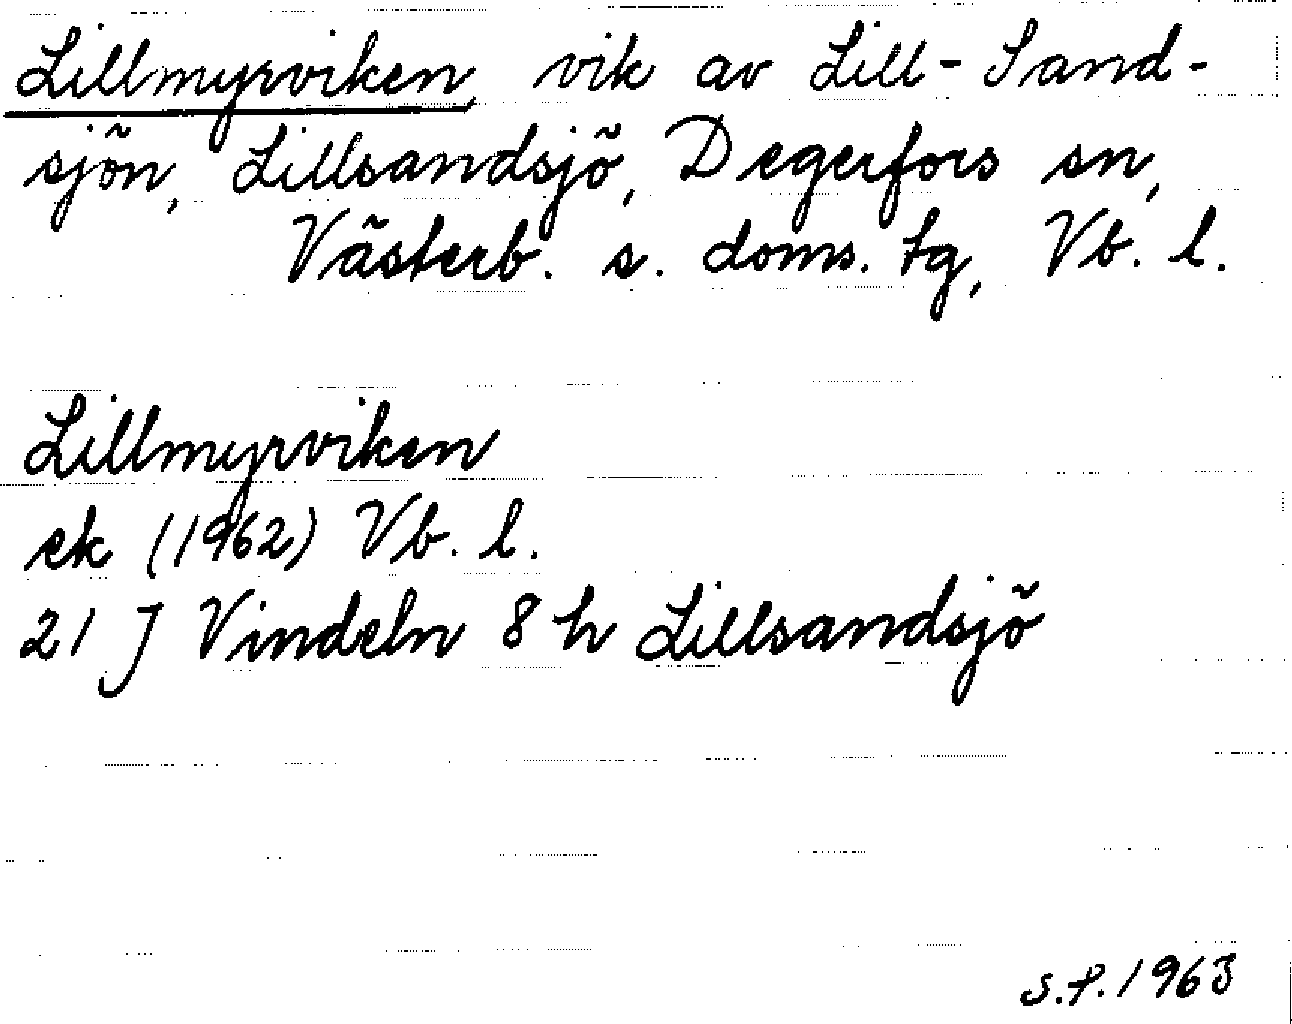 Lillmyrviken, vik av Lill-Sand-
sjön, Lillsandsjö, Degerfors sn,
Västerb. s. doms. tg, Vb. l.
Lillmyrviken
ek (1962) Vb. l.
21 J Vindeln 8 h Lillsandsjö
S.P. 1963